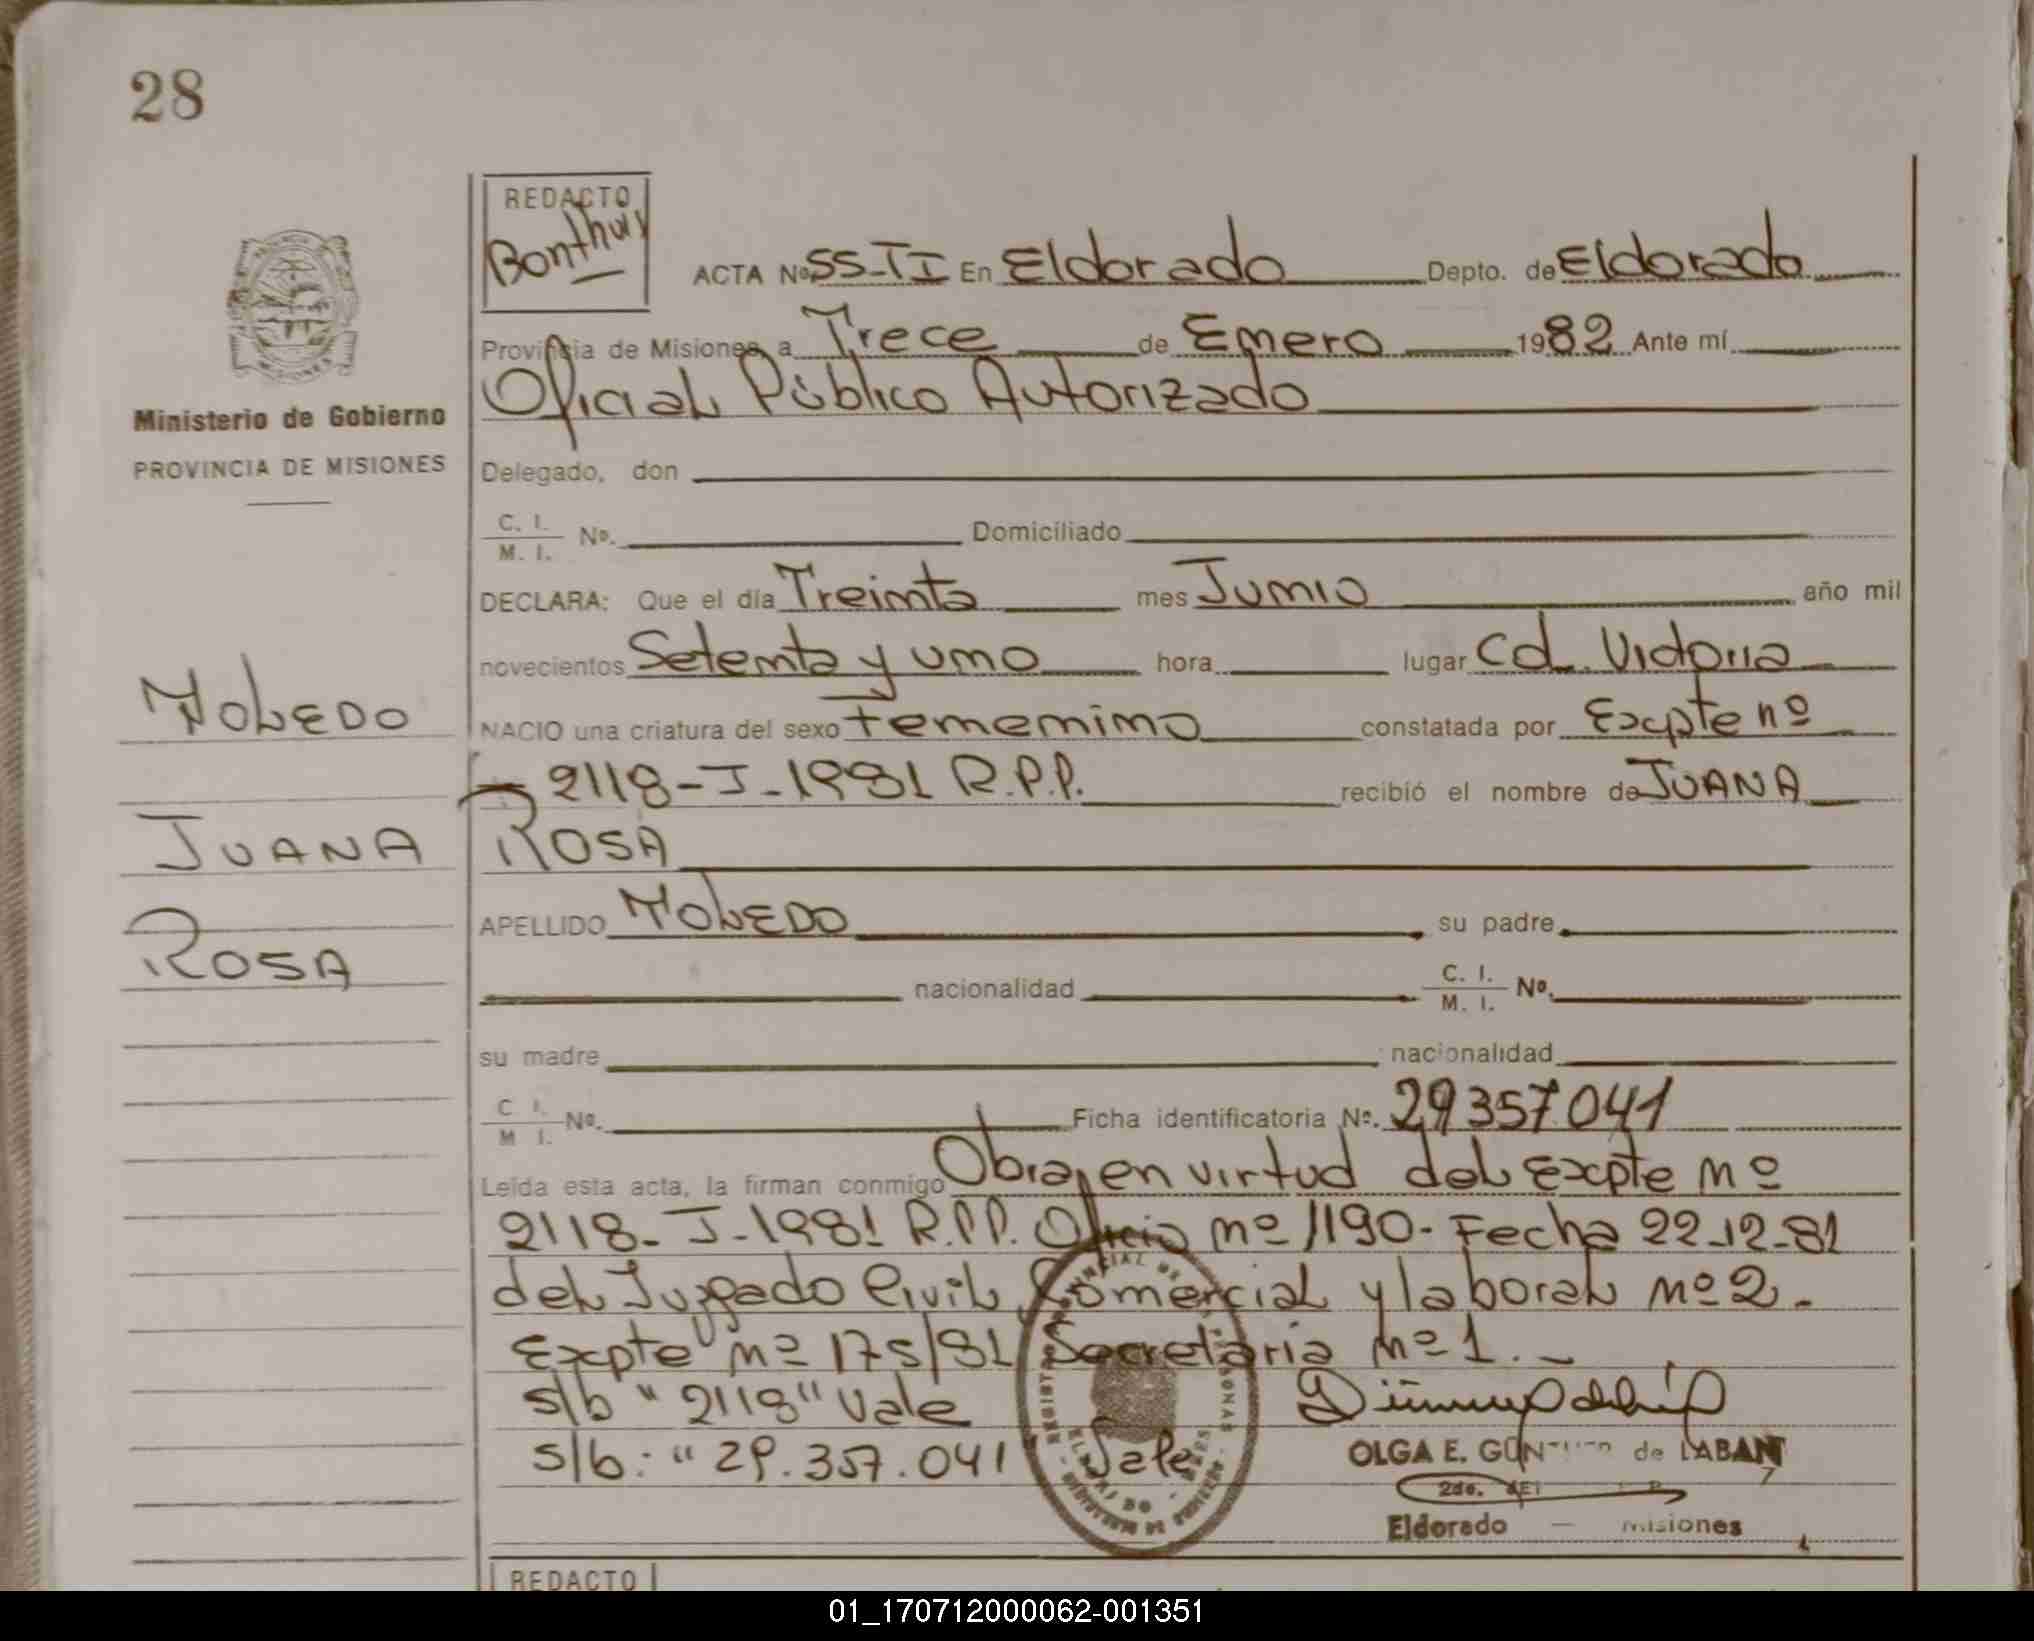 28
REDACTO
Bonthuy
ACTA Nº 55-TI En Eldorado Depto. de Eldorado
Provincia de Misiones, a Trece de Enero 1982 Ante mí
Oficial Público Autorizado
Ministerio de Gobierno
PROVINCIA DE MISIONES
Delegado, don
C. I.
M. I. Nº. Domiciliado
DECLARA: Que el día Treinta mes Junio año mil
novecientos Setenta y uno hora lugar Cd. Victoria
TOLEDO
NACIO una criatura del sexo Femenino constatada por Expte nº
2118-J-1981 R.P.P. recibió el nombre de JUANA
JUANA
ROSA
APELLIDO TOLEDO su padre
ROSA
nacionalidad C. I.
M. I. Nº.
su madre nacionalidad
C. I.
M. I. Nº. Ficha identificatoria Nº. 29357041
Leída esta acta, la firman conmigo Obra, en virtud del Expte nº
2118-J-1981 R.P.P. Oficio nº 1190- Fecha 22-12-81
del Juzgado Civil, Comercial y laboral nº 2.
Expte nº 175/81 Secretaria nº 1.-
s/b "2118" Vale
s/b: "29.357.041" Vale
OLGA E. de LABANT
2do.
Eldorado — Misiones
REDACTO
01_170712000062-001351